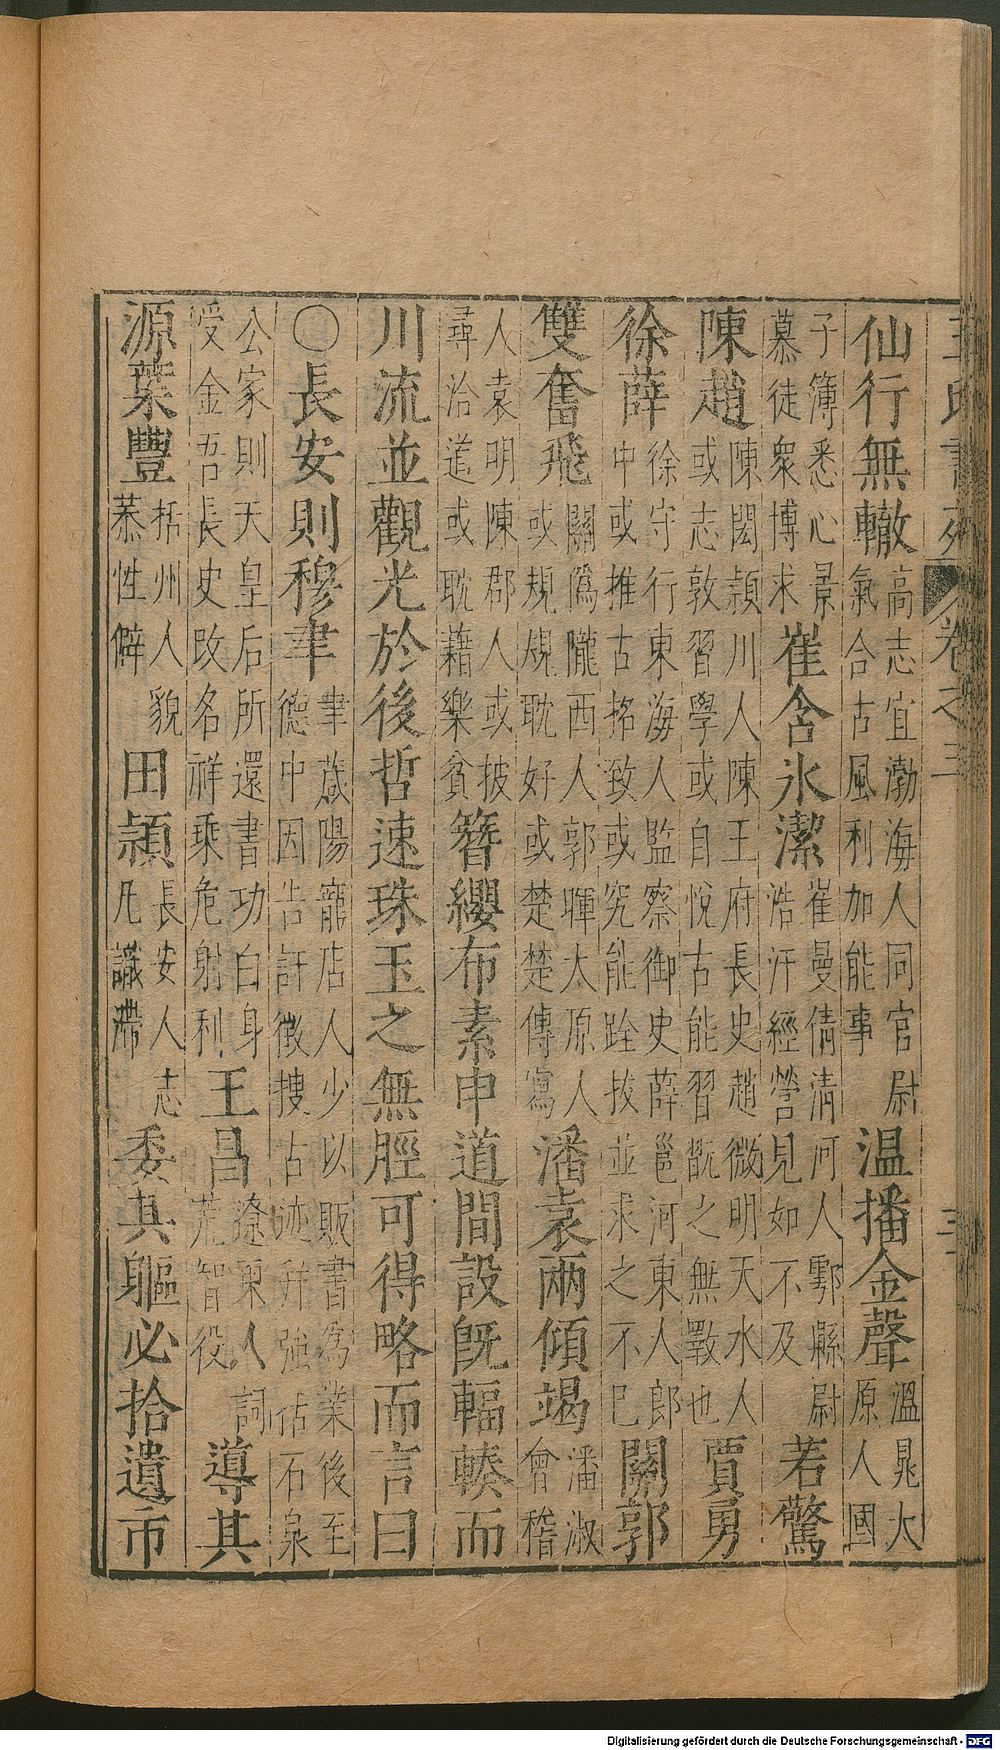 王氏書苑　卷之三　三
仙行無轍
高志宜渤海人同官尉
氣合古風利加能事
温播金聲
溫晁大
原人國
子簿悉心景
慕徒衆博求
崔含氷潔
崔曼倩清河人鄠縣尉
浩汗經營見如不及
若驚
陳趙
陳閎潁川人陳王府長史趙微明天水人
或志敦習學或自悅古能習翫之無斁也
賈勇
徐薛
徐守行東海人監察御史薛邕河東人郎
中或推古招致或究能跧拔並求之不已
關郭
雙奮飛
關僞隴西人郭暉太原人
或規規耽好或楚楚傳寫
潘袁兩傾竭
潘淑
會稽
人袁明陳郡人或披
尋洽道或耽藉樂貧
簪纓布素申道間設旣輻輳而
川流並觀光於後哲速珠玉之無脛可得略而言曰
〇長安則穆聿
聿葴陽寵店人少以販書爲業後至
德中因告訐徵搜古迹幷強估石泉
公家則天皇后所還書功白身
受金吾長史改名祥乘危射利
王昌
遼東人詞
荒智役
導其
源葉豐
栝州人貌
慕性僻
田頴
長安人志
凡識滯
委其軀必拾遺市
Digitalisierung gefördert durch die Deutsche Forschungsgemeinschaft - DFG